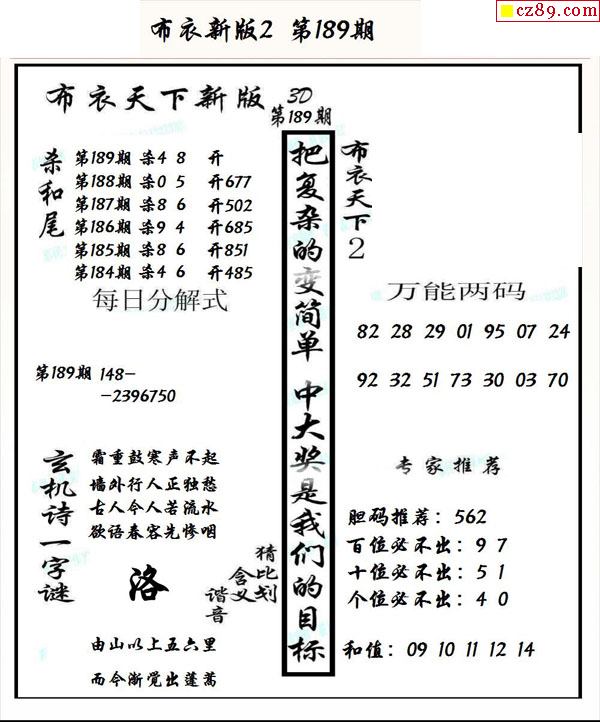 cz89.com
布衣新版2 第189期
布衣天下新版 3D
第189期
杀和尾
第189期 杀4 8 开
第188期 杀0 5 开677
第187期 杀8 6 开502
第186期 杀9 4 开685
第185期 杀8 6 开851
第184期 杀4 6 开485
每日分解式
第189期 148-
-2396750
玄机诗一字谜
霜重鼓寒声不起
墙外行人正独愁
古人今人若流水
欲语春容先惨咽
洛
猜比划
含义
谐音
由山以上五六里
而今渐觉出蓬蒿
把复杂的变简单 中大奖是我们的目标
布衣天下2
万能两码
82 28 29 01 95 07 24
92 32 51 73 30 03 70
专家推荐
胆码推荐：562
百位必不出：9 7
十位必不出：5 1
个位必不出：4 0
和值：09 10 11 12 14